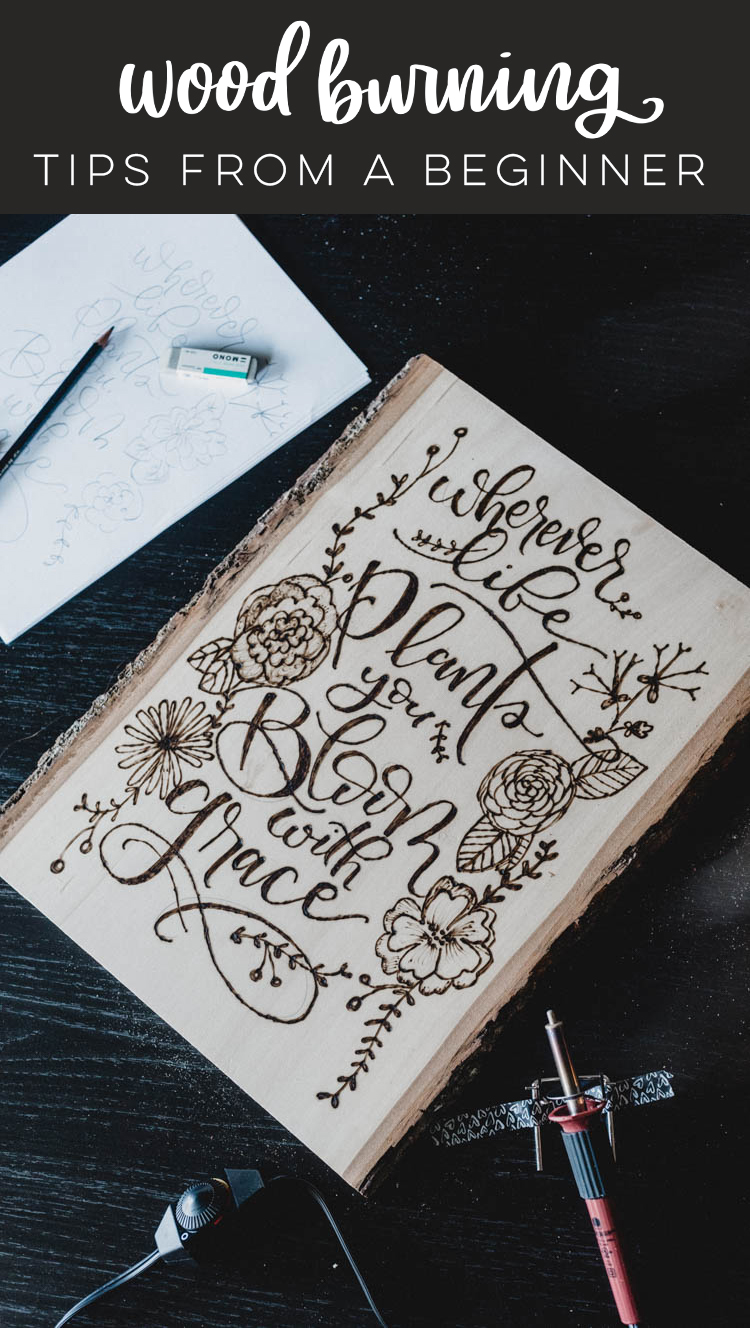 wood burning
TIPS FROM A BEGINNER
wherever
life
MONO
wherever
life
Plants
you
Bloom
with
grace